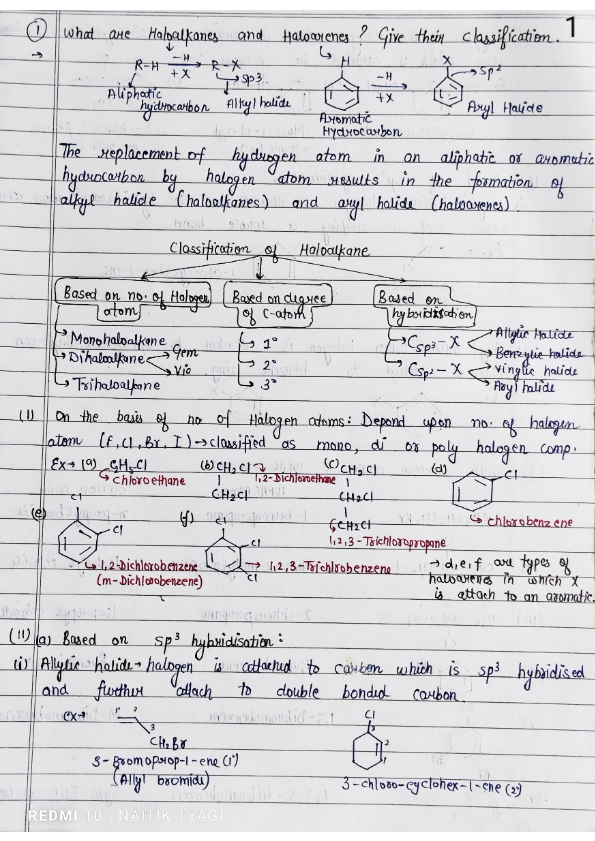 1
① What are Haloalkanes and Haloarenes? Give their classification.
→ R-H -H +X R-X sp3
H -H +X X sp2
Aliphatic hydrocarbon Alkyl halide
Aromatic Hydrocarbon Aryl Halide
The replacement of hydrogen atom in an aliphatic or aromatic
hydrocarbon by halogen atom results in the formation of
alkyl halide (haloalkanes) and aryl halide (haloarenes).
Classification of Haloalkane
Based on no. of Halogen atom
Monohaloalkane
Dihaloalkane Gem Vic
Trihaloalkane
Based on degree of C-atom
1°
2°
3°
Based on hybridisation
Csp3-X Allylic Halide Benzylic halide
Csp2-X Vinylic halide Aryl halide
(I) On the basis of no of Halogen atoms: Depend upon no. of halogen
atom (F, Cl, Br, I) → classified as mono, di or poly halogen comp.
Ex→ (a) C2H5Cl
chloroethane
(b) CH2Cl
CH2Cl
1,2-Dichloroethane
(c) CH2Cl
CHCl
CH2Cl
1,2,3-Trichloropropane
(d) Cl
chlorobenzene
(e) Cl Cl
1,2-Dichlorobenzene
(m-Dichlorobenzene)
(f) Cl Cl Cl
1,2,3-Trichlorobenzene
→ d, e, f are types of
haloarenes in which X
is attach to an aromatic.
(II) (a) Based on sp3 hybridisation:
(i) Allylic halide→ halogen is attached to carbon which is sp3 hybridised
and further attach to double bonded carbon
ex→ 1 2 3
CH2Br
3-Bromoprop-1-ene (1°)
(Allyl bromide)
Cl
3 2 1
3-chloro-cyclohex-1-ene (2°)
REDMI 10 | NAITIK TYAGI